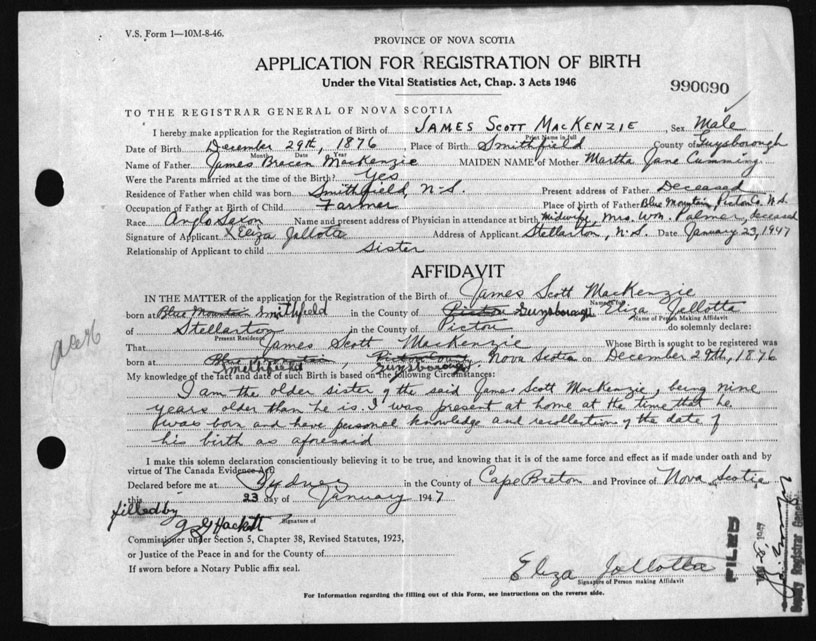 V.S. Form 1—10M-8-46.
PROVINCE OF NOVA SCOTIA
APPLICATION FOR REGISTRATION OF BIRTH
Under the Vital Statistics Act, Chap. 3 Acts 1946
990090
TO THE REGISTRAR GENERAL OF NOVA SCOTIA
I hereby make application for the Registration of Birth of JAMES SCOTT MACKENZIE, Sex Male
Print Name in full
Date of Birth December 29th, 1876, Place of Birth Smithfield County of Guysborough
Month Date Year
Name of Father James Bracen MacKenzie MAIDEN NAME of Mother Martha Jane Cumming.
Were the Parents married at the time of the Birth? Yes
Residence of Father when child was born Smithfield, N.S. Present address of Father Deceased
Occupation of Father at Birth of Child Farmer Place of birth of Father Blue Mountain, Pictou Co. N.S.
Race Anglo Saxon Name and present address of Physician in attendance at birth, Midwife, Mrs. Wm. Palmer, deceased
Signature of Applicant X Eliza Jollotta Address of Applicant Stellarton, N.S. Date January 23, 1947
Relationship of Applicant to child Sister
AFFIDAVIT
IN THE MATTER of the application for the Registration of the Birth of James Scott MacKenzie
born at Blue Mountain Smithfield in the County of Pictou Guysborough Eliza Jollotta
Name of Person Making Affidavit
of Stellarton in the County of Pictou do solemnly declare:
Present Residence
That James Scott MacKenzie Whose Birth is sought to be registered was
born at Blue Mountain, Pictou County, Nova Scotia on December 29th, 1876
Smithfield Guysborough
My knowledge of the fact and date of such Birth is based on the following Circumstances:
I am the older sister of the said James Scott MacKenzie, being nine
years older than he is. I was present at home at the time that he
was born and have personel knowledge and recollection of the date of
his birth as aforesaid
I make this solemn declaration conscientiously believing it to be true, and knowing that it is of the same force and effect as if made under oath and by
virtue of The Canada Evidence Act.
Declared before me at Sydney in the County of Cape Breton and Province of Nova Scotia
this 23 day of January 1947
filled by
J G Hackett
Signature of
Commissioner under Section 5, Chapter 38, Revised Statutes, 1923,
or Justice of the Peace in and for the County of
If sworn before a Notary Public affix seal.
Eliza Jollotta
Signature of Person making Affidavit
For Information regarding the filling out of this Form, see instructions on the reverse side.
FILED
Deputy Registrar General